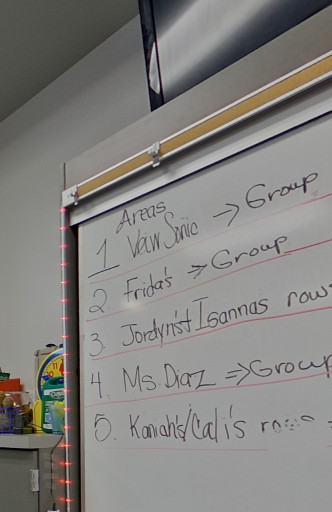 Areas
1 View Sonic → Group
2. Frida's → Group
3. Jordyn's + Isannas rows
4. Ms. Diaz ⇒ Group
5. Kaniah's/Cali's rows